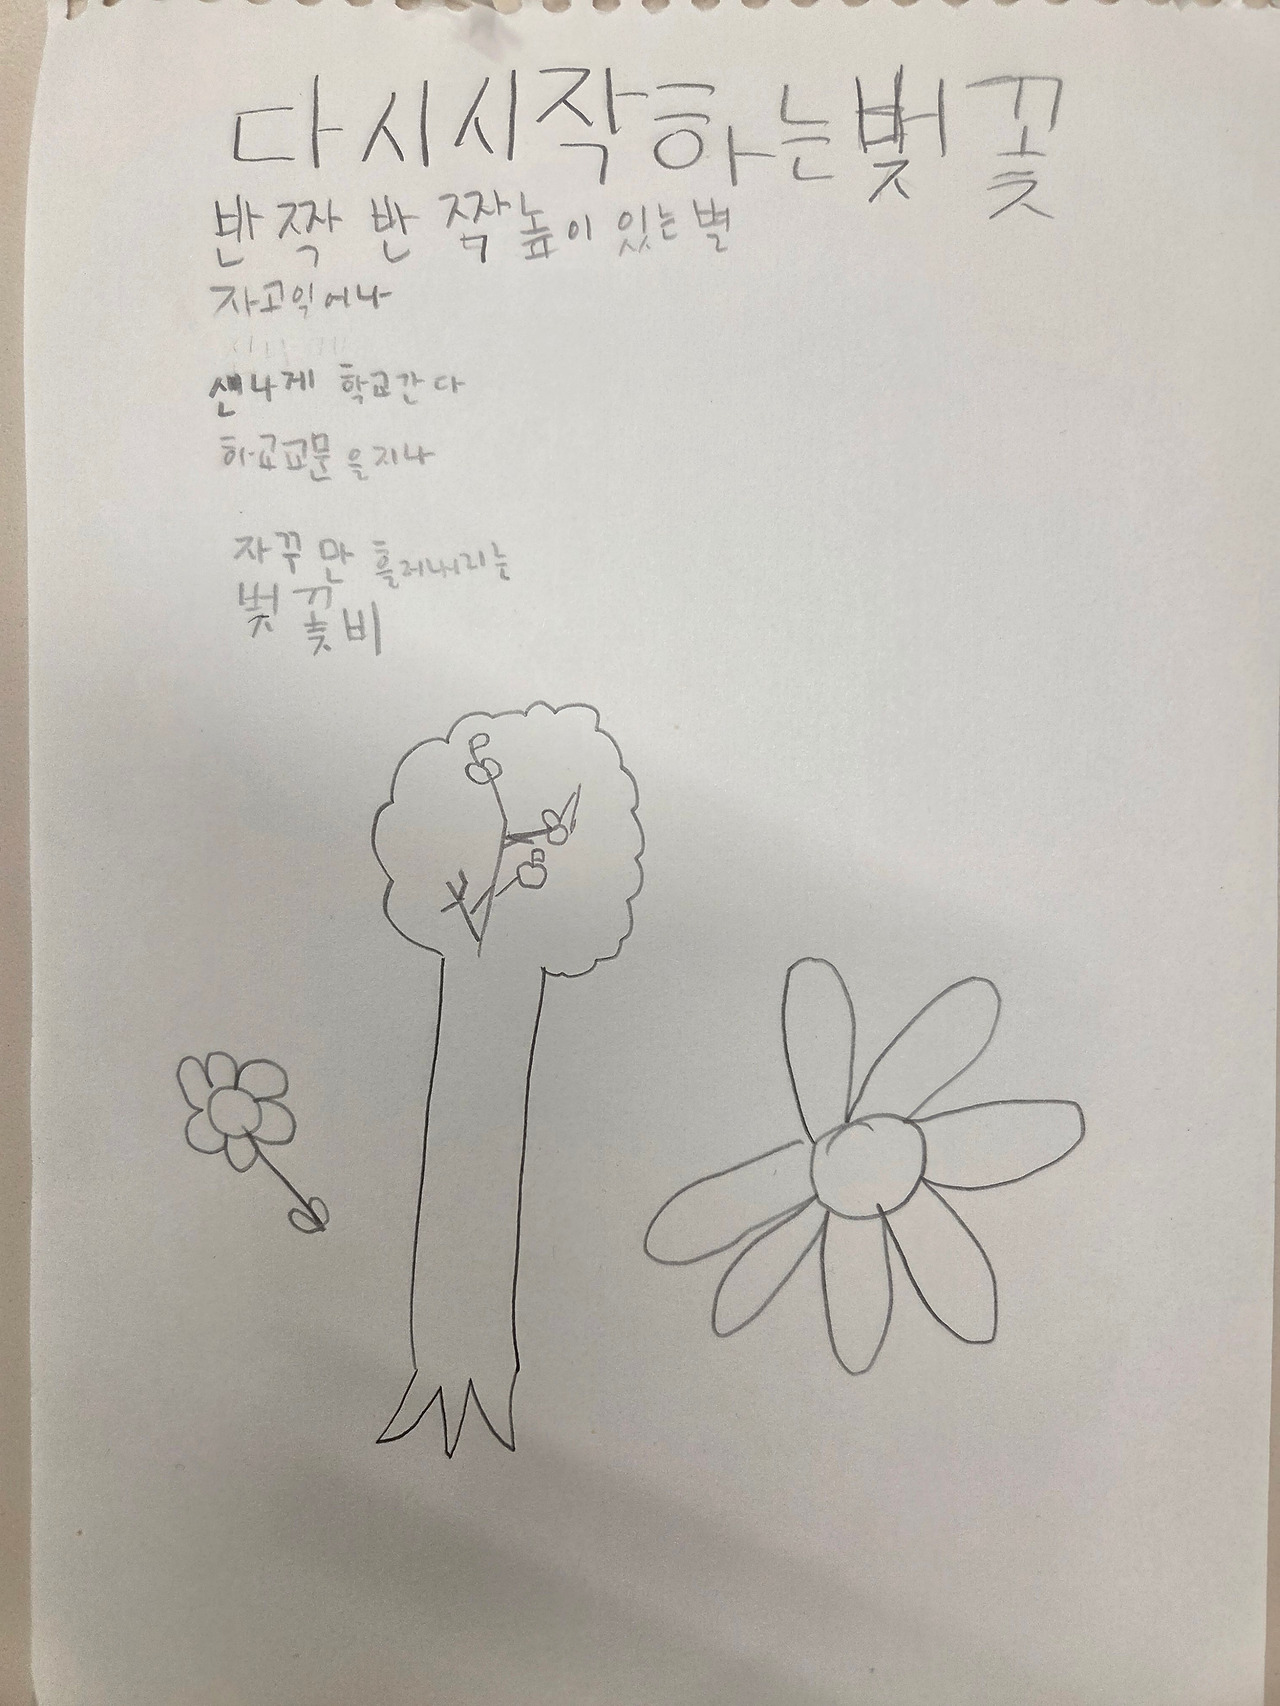 다시시작하는벚꽃
반짝 반짝높이 있는별
자고익어나
신나게 학교간다
하교교문을지나
자꾸만 흘러내리는
벚꽃비